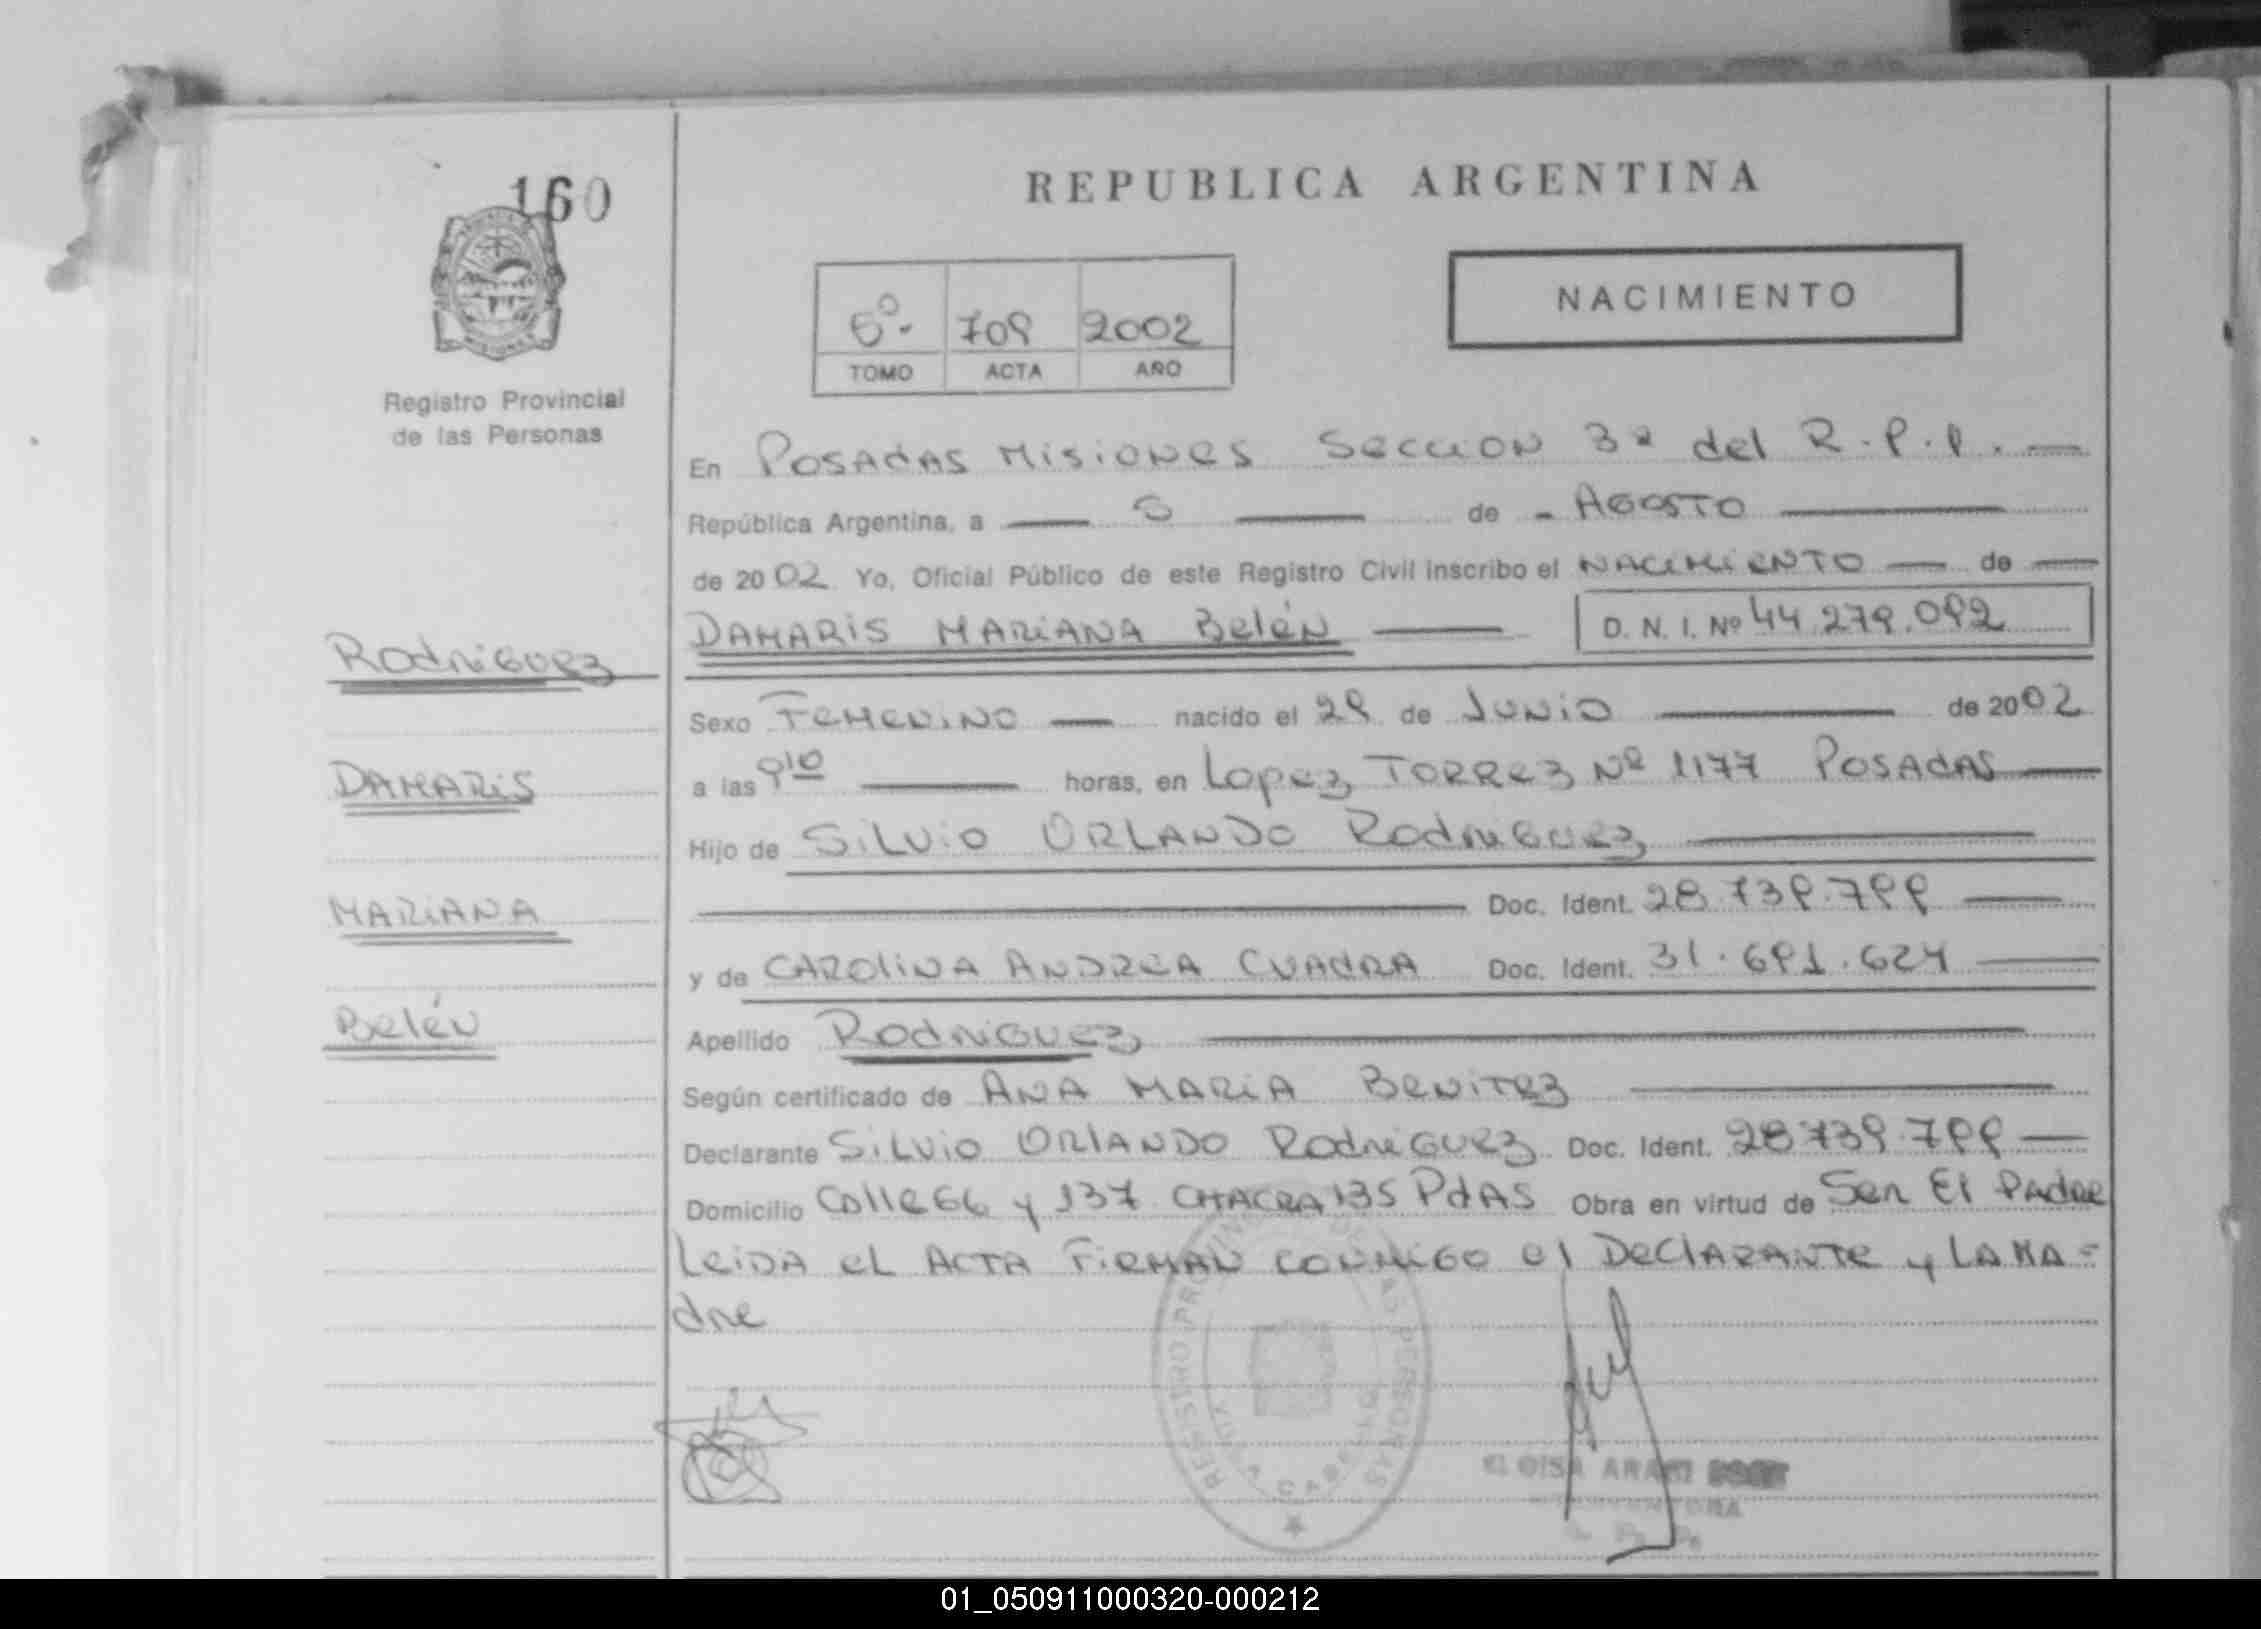 160
REPUBLICA ARGENTINA
NACIMIENTO
6º- 709 2002
TOMO ACTA AÑO
Registro Provincial
de las Personas
En POSADAS MISIONES SECCION 3ª del R.P.P.
República Argentina, a de AGOSTO
de 2002 Yo, Oficial Público de este Registro Civil inscribo el NACIMIENTO de
DAMARIS MARIANA Belén D. N. I. Nº 44.279.092
Rodriguez
Sexo FEMENINO nacido el 29 de JUNIO de 2002
DAMARIS
a las 9 10 horas, en Lopez TORREZ Nº 1177 POSADAS
Hijo de SILVIO ORLANDO Rodriguez
MARIANA
Doc. Ident. 28.739.799
y de CAROLINA ANDREA CUADRA Doc. Ident. 31.691.624
Belén
Apellido Rodriguez
Según certificado de ANA MARIA BENITEZ
Declarante SILVIO ORLANDO RODRIGUEZ Doc. Ident. 28739.799
Domicilio Calle 66 y 137 CHACRA 135 PdAS Obra en virtud de Ser El Padre
LEIDA EL ACTA FIRMAN CONMIGO el DECLARANTE y LA MA=
dre
REGISTRO PROVINCIAL DE LAS PERSONAS
01_050911000320-000212